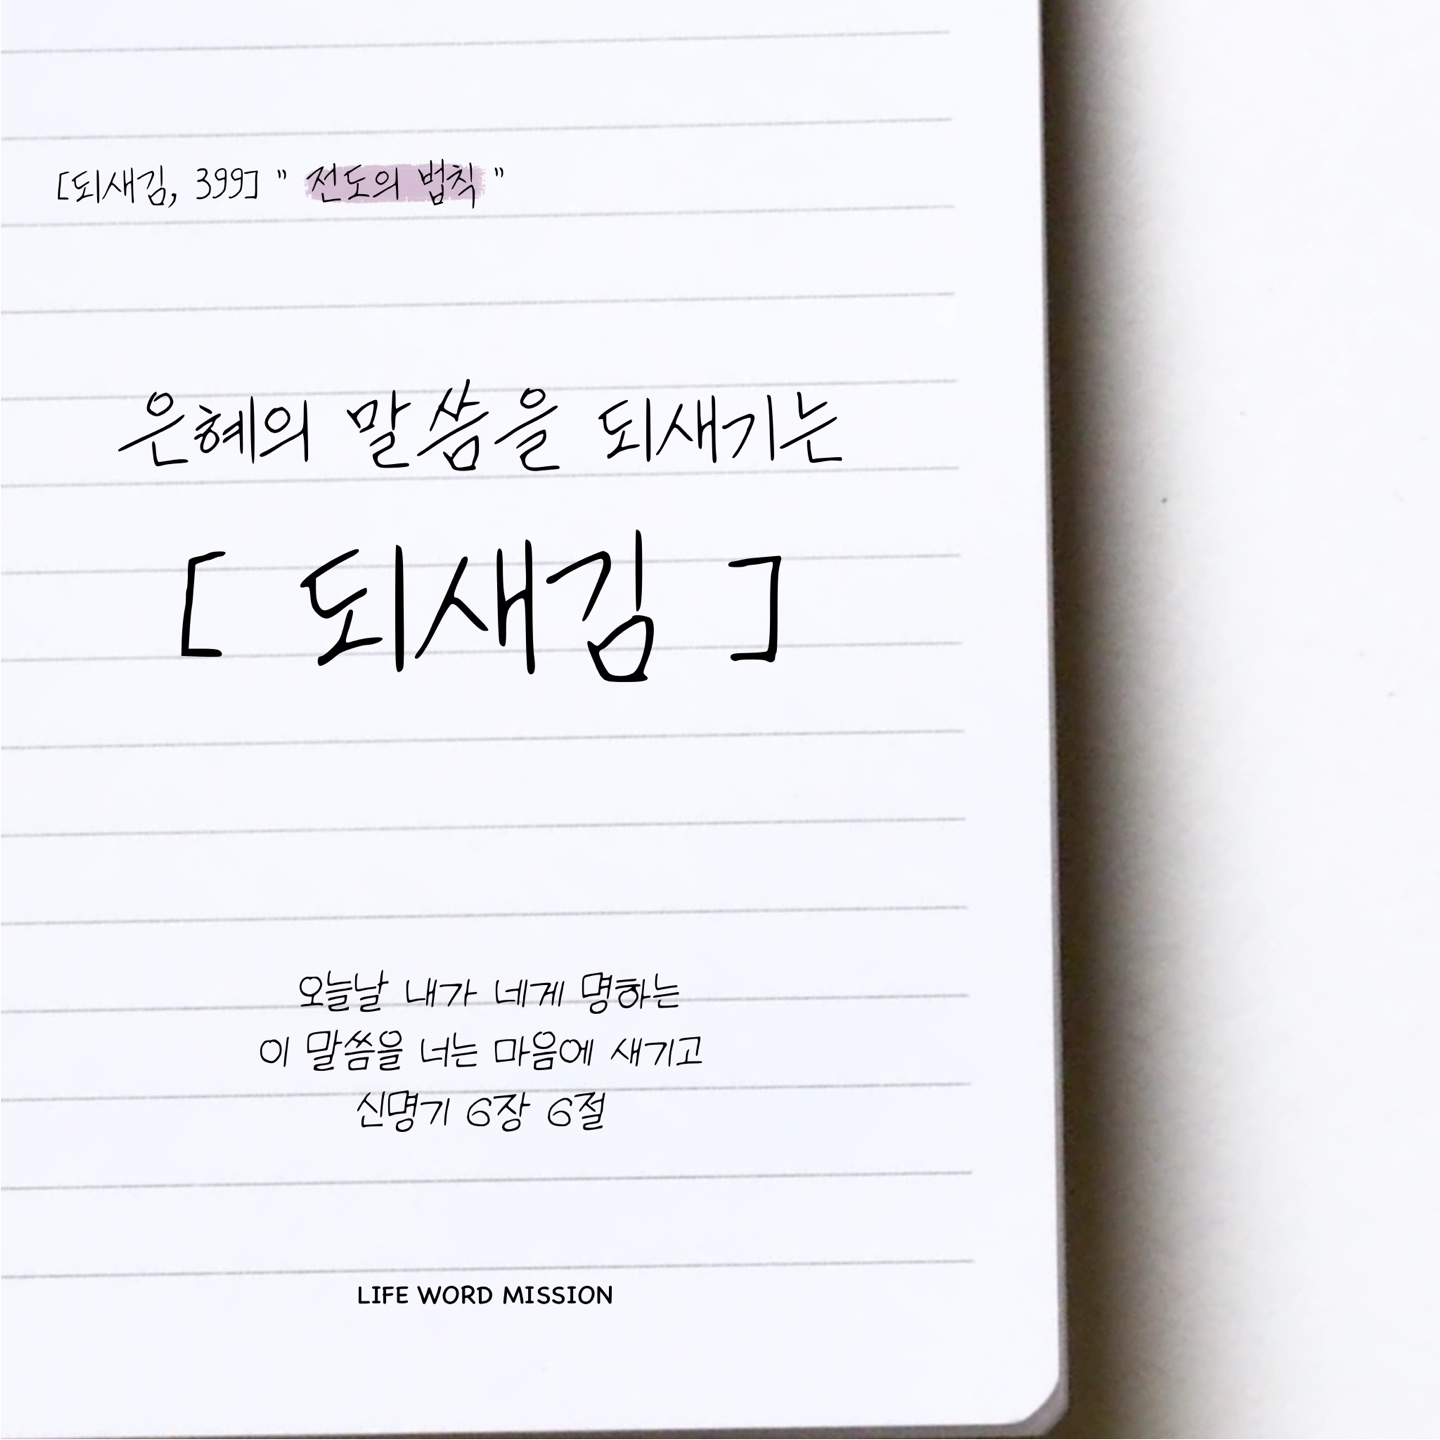 [되새김, 399] " 전도의 법칙 "
은혜의 말씀을 되새기는
[ 되새김 ]
오늘날 내가 네게 명하는
이 말씀을 너는 마음에 새기고
신명기 6장 6절
LIFE WORD MISSION